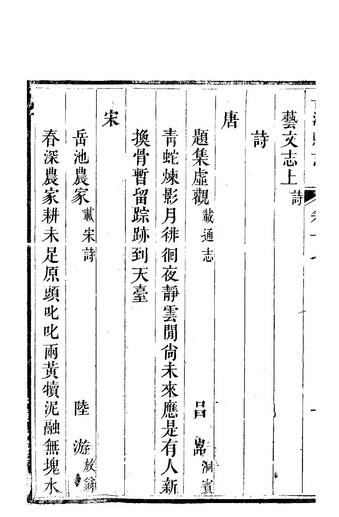 藝文志上 詩
詩
唐
題集虛觀 載通志 呂嵒 洞賓
青蛇煉影月徘徊夜靜雲閒尚未來應是有人新
換骨暫留踪跡到天臺
宋
岳池農家 載宋詩 陸游 放翁
春深農家耕未足原頭叱叱兩黃犢泥融無塊水